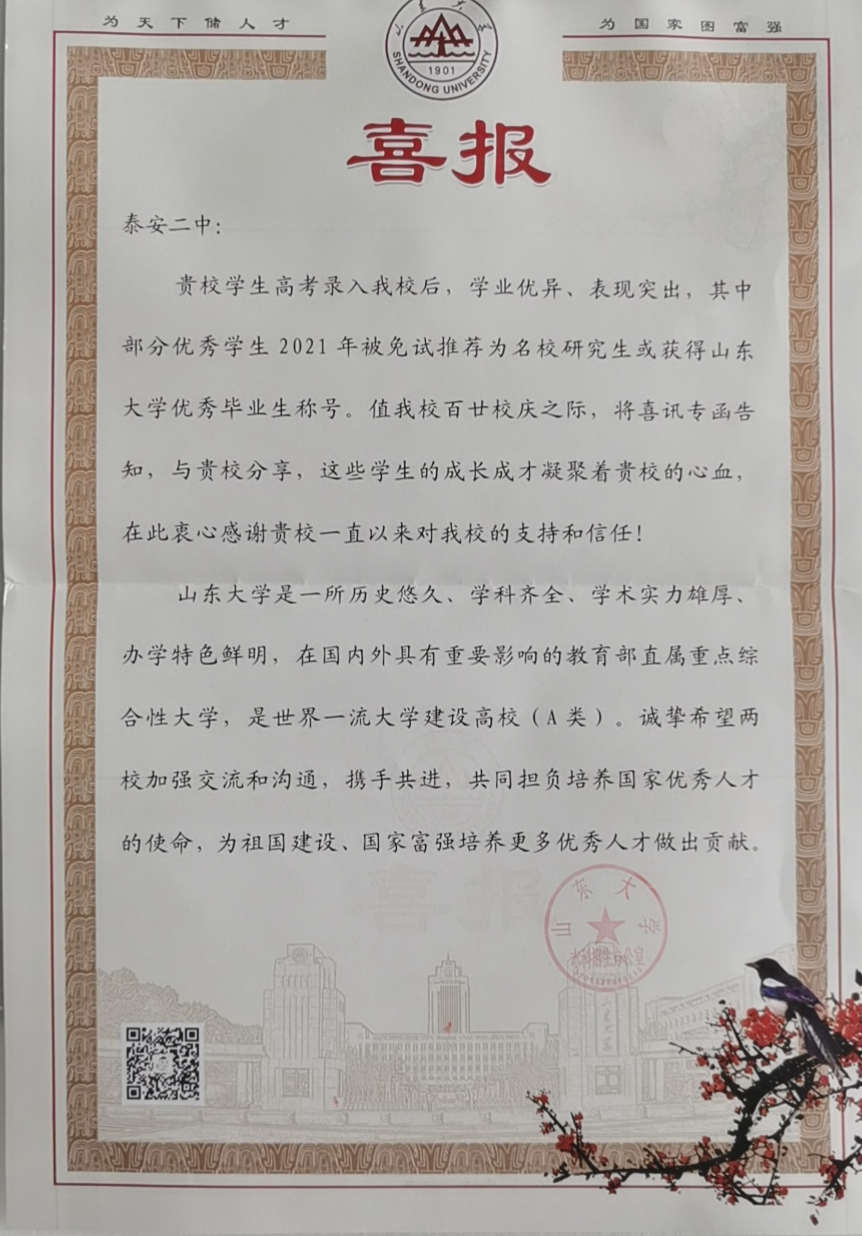 为天下储人才
为国家图富强
山东大学
1901
SHANDONG UNIVERSITY
喜报
泰安二中：
贵校学生高考录入我校后，学业优异、表现突出，其中
部分优秀学生2021年被免试推荐为名校研究生或获得山东
大学优秀毕业生称号。值我校百廿校庆之际，将喜讯专函告
知，与贵校分享，这些学生的成长成才凝聚着贵校的心血，
在此衷心感谢贵校一直以来对我校的支持和信任！
山东大学是一所历史悠久、学科齐全、学术实力雄厚、
办学特色鲜明，在国内外具有重要影响的教育部直属重点综
合性大学，是世界一流大学建设高校（A类）。诚挚希望两
校加强交流和沟通，携手共进，共同担负培养国家优秀人才
的使命，为祖国建设、国家富强培养更多优秀人才做出贡献。
山东大学
本科招生办公室
山东大学